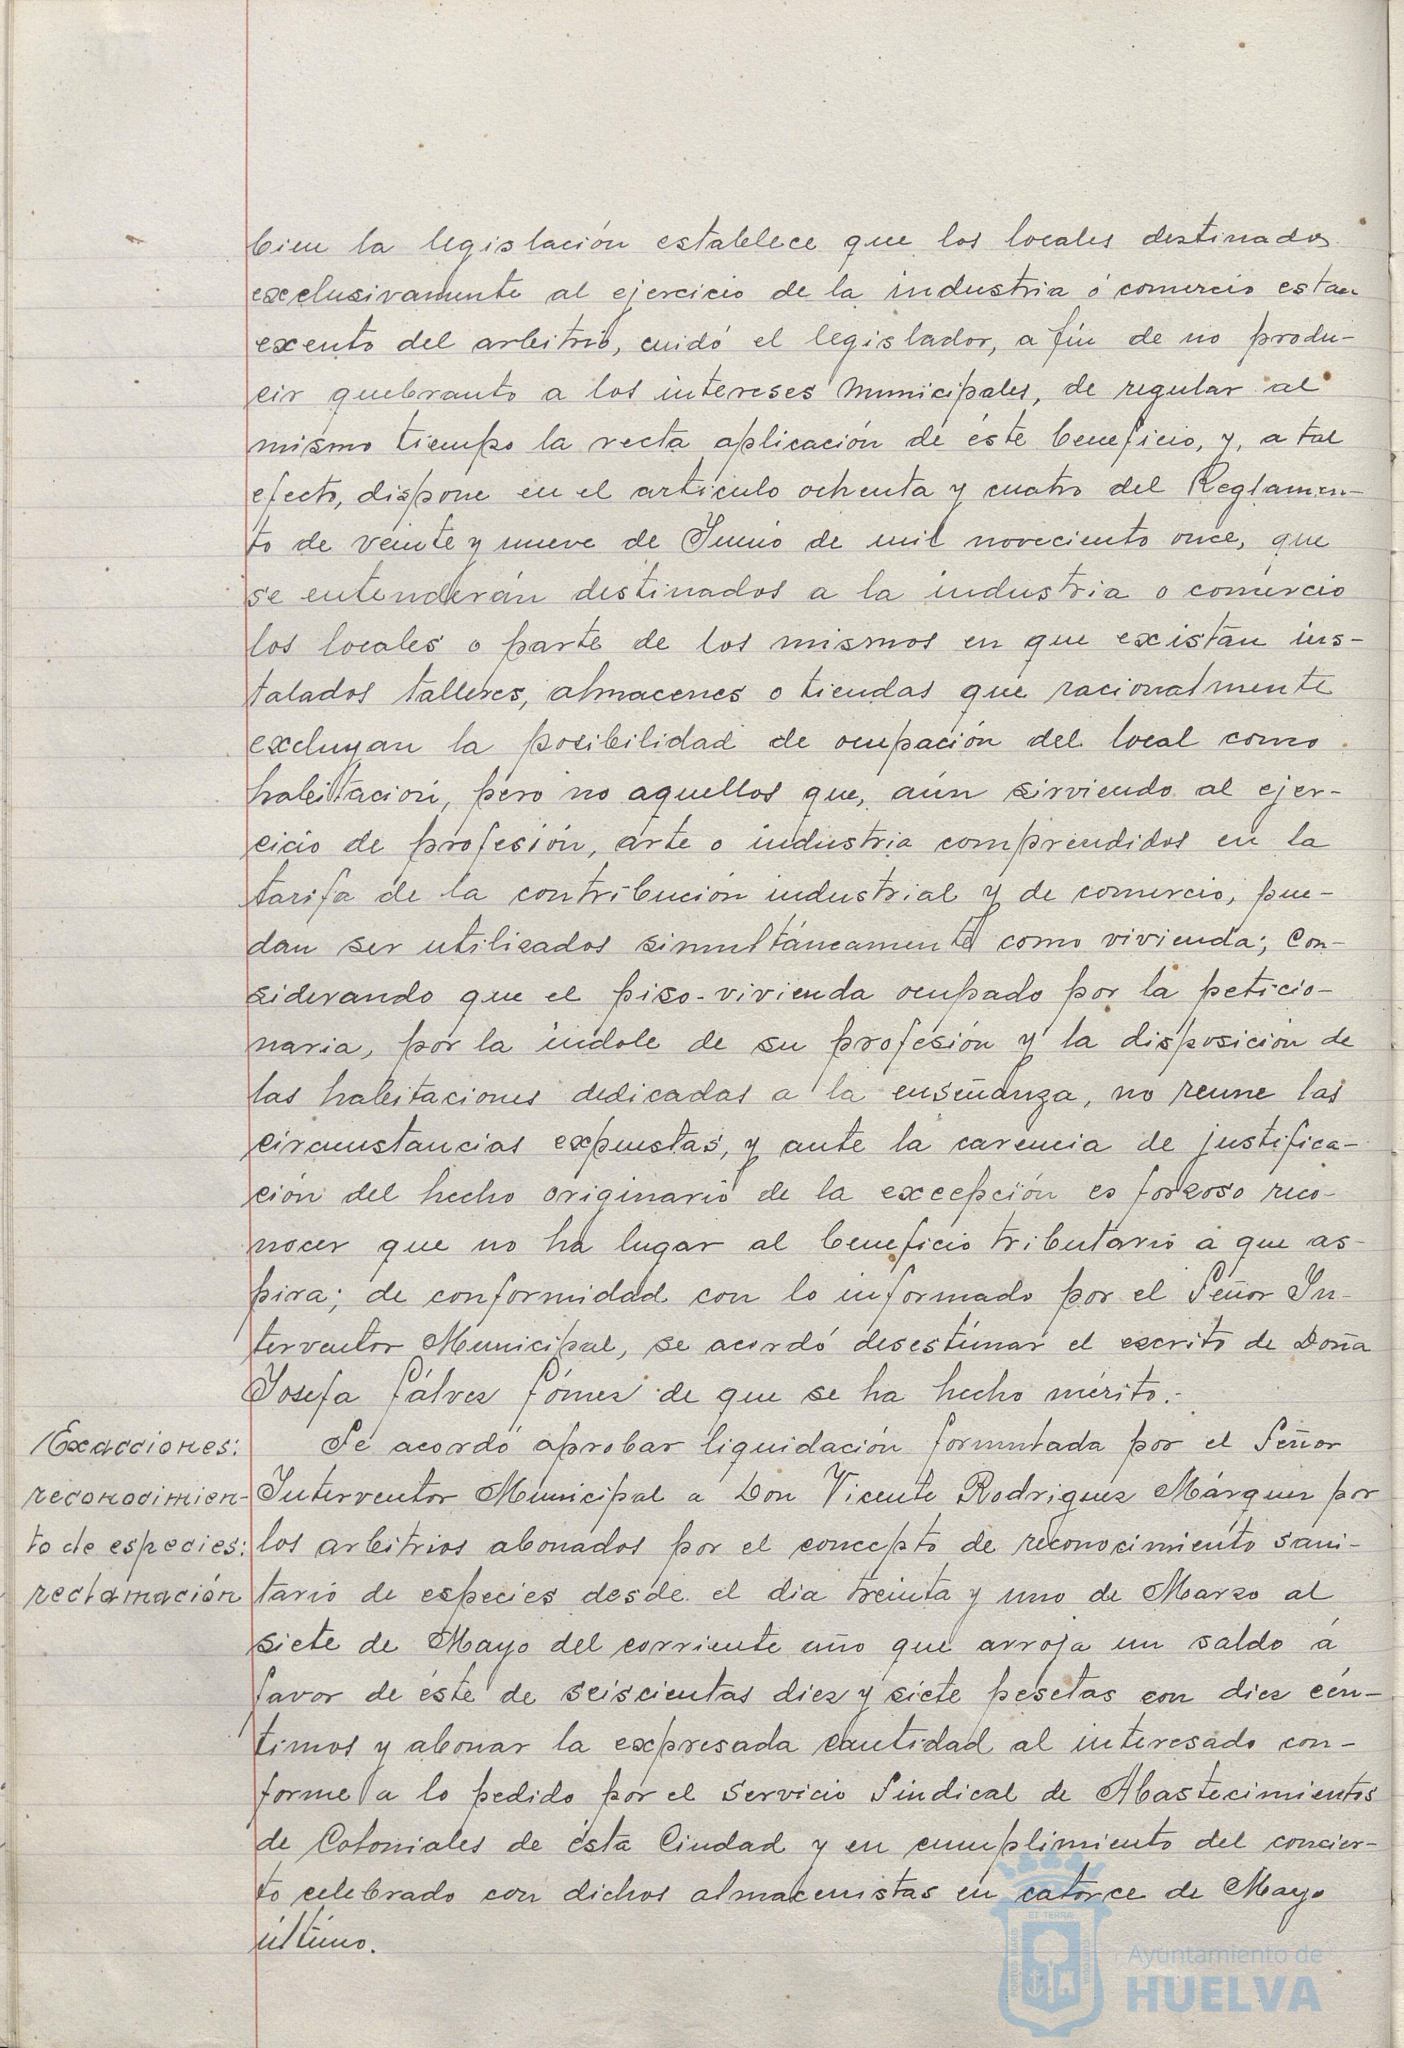 bien la legislación establece que los locales destinados
exclusivamente al ejercicio de la industria ó comercio estan
exento del arbitrio, cuidó el legislador, a fin de no produ-
cir quebranto a los intereses municipales, de regular al
mismo tiempo la recta aplicación de éste beneficio, y, a tal
efecto, dispone en el articulo ochenta y cuatro del Reglamen-
to de veinte y nueve de Junio de mil noveciento once, que
se entenderán destinados a la industria o comercio
los locales o parte de los mismos en que existan ins-
talados talleres, almacenes o tiendas que racionalmente
excluyan la posibilidad de ocupación del local como
habitación, pero no aquellos que, aún sirviendo al ejer-
cicio de profesión, arte o industria comprendidos en la
tarifa de la contribución industrial y de comercio, pue-
dan ser utilizados simultáneamente como vivienda; Con-
siderando que el piso-vivienda ocupado por la peticio-
naria, por la indole de su profesión y la disposición de
las habitaciones dedicadas a la enseñanza, no reune las
circunstancias expuestas, y ante la carencia de justifica-
ción del hecho originario de la excepción es forzoso reco-
nocer que no ha lugar al beneficio tributario a que as-
pira; de conformidad con lo informado por el Señor In-
terventor Municipal, se acordó desestimar el escrito de Doña
Josefa Gálvez Gómez de que se ha hecho mérito.-
Exacciones:
reconocimien-
to de especies:
reclamación
Se acordó aprobar liquidación formulada por el Señor
Interventor Municipal a Don Vicente Rodriguez Márquez por
los arbitrios abonados por el concepto de reconocimiento sani-
tario de especies desde el dia treinta y uno de Marzo al
siete de Mayo del corriente año que arroja un saldo á
favor de éste de seiscientas diez y siete pesetas con diez cén-
timos y abonar la expresada cantidad al interesado con-
forme a lo pedido por el Servicio Sindical de Abastecimientos
de Coloniales de ésta Ciudad y en cumplimiento del concier-
to celebrado con dichos almacenistas en catorce de Mayo
último.
Ayuntamiento de
HUELVA